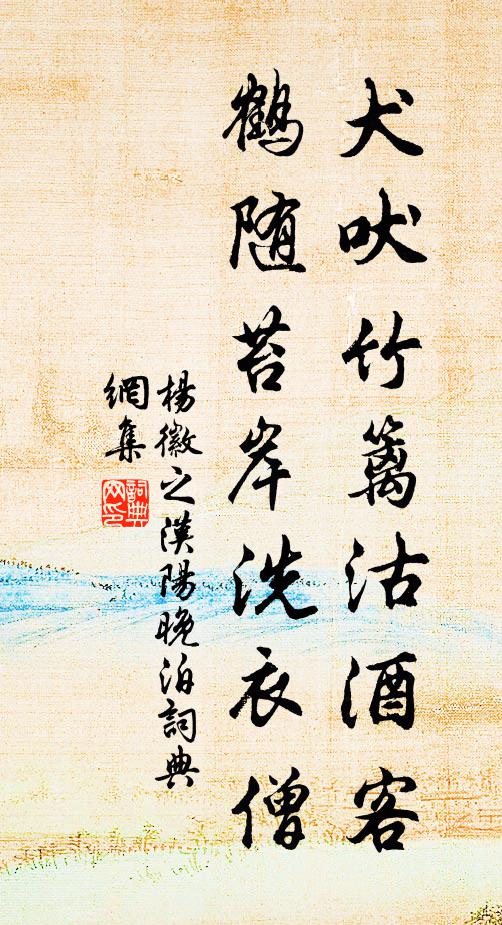 犬吠竹篱沽酒客
鹤随苔岸洗衣僧
楊徽之漢陽晚泊詞典
網集
詞典
网印